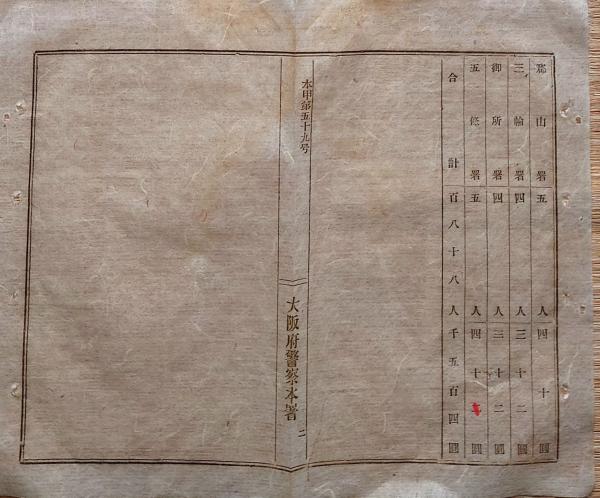 郡山署五人四十圓
三輪署四人三十二圓
御所署四人三十二圓
五條署五人四十圓
合計百八十八人千五百四圓
本甲第五十九号
大阪府警察本署
二